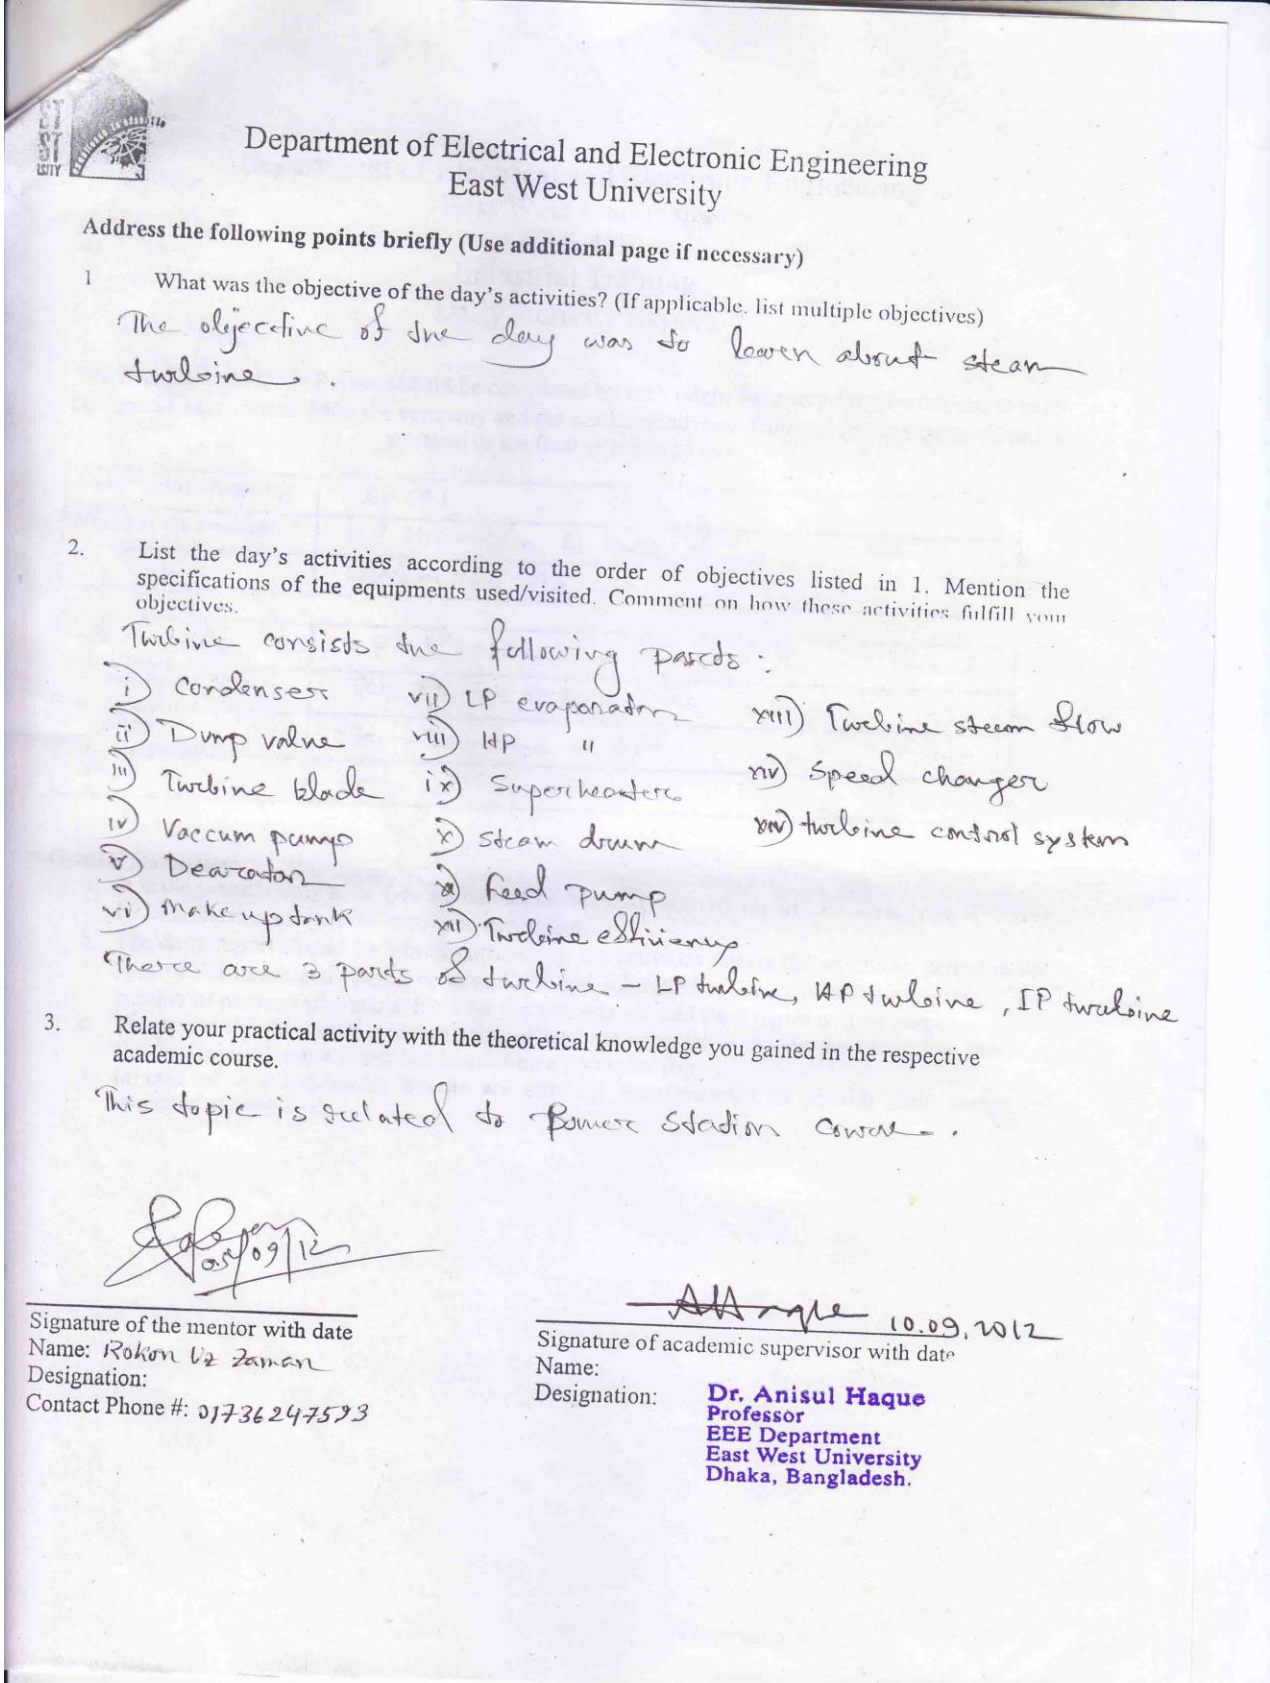 ST
ST
SITY
Department of Electrical and Electronic Engineering
East West University
Address the following points briefly (Use additional page if necessary)
1 What was the objective of the day's activities? (If applicable, list multiple objectives)
The objective of the day was to learn about steam
turbine.
2. List the day's activities according to the order of objectives listed in 1. Mention the
specifications of the equipments used/visited. Comment on how these activities fulfill your
objectives.
Turbine consists the following parts:
i) Condenser vii) LP evaporator xiii) Turbine steam flow
ii) Dump valve viii) HP "
iii) Turbine blade ix) Superheater xiv) Speed changer
iv) Vaccum pump x) Steam drum xiv) turbine control system
v) Dearator xi) Feed pump
vi) Make up tank xii) Turbine efficiency
There are 3 parts of turbine – LP turbine, HP turbine, IP turbine
3. Relate your practical activity with the theoretical knowledge you gained in the respective
academic course.
This topic is related to Power Station Course.
05/09/12
AHaque 10.09.2012
Signature of the mentor with date
Name: Rokon Uz Zaman
Designation:
Contact Phone #: 01736247593
Signature of academic supervisor with date
Name:
Designation: Dr. Anisul Haque
Professor
EEE Department
East West University
Dhaka, Bangladesh.